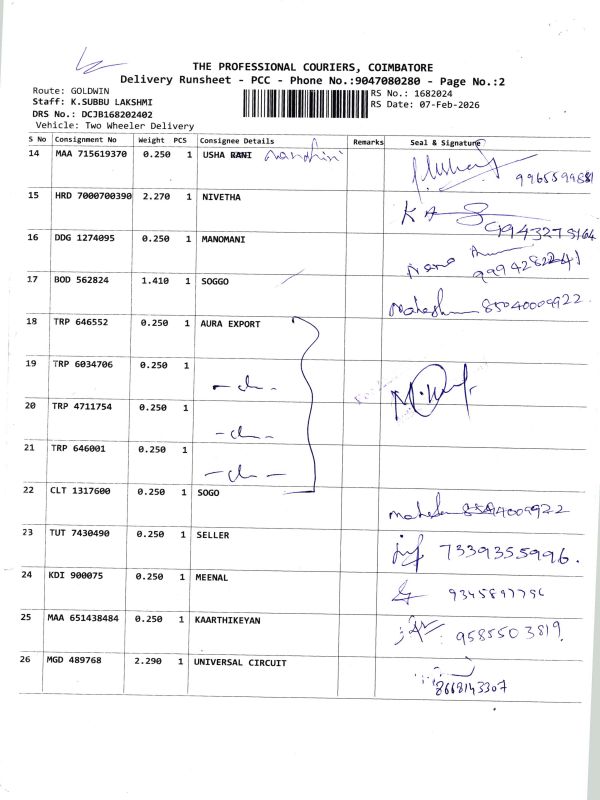 THE PROFESSIONAL COURIERS, COIMBATORE
Delivery Runsheet - PCC - Phone No.:9047080280 - Page No.:2
Route: GOLDWIN
RS No.: 1682024
Staff: K.SUBBU LAKSHMI
RS Date: 07-Feb-2026
DRS No.: DCJB168202402
Vehicle: Two Wheeler Delivery
S No Consignment No Weight PCS Consignee Details Remarks Seal & Signature
14 MAA 715619370 0.250 1 USHA RANI Nandhini
15 HRD 7000700390 2.270 1 NIVETHA
16 DDG 1274095 0.250 1 MANOMANI
17 BOD 562824 1.410 1 SOGGO Mahesh
18 TRP 646552 0.250 1 AURA EXPORT
19 TRP 6034706 0.250 1 -do-
20 TRP 4711754 0.250 1 -do-
21 TRP 646001 0.250 1 -do-
22 CLT 1317600 0.250 1 SOGO
23 TUT 7430490 0.250 1 SELLER 7339355996.
24 KDI 900075 0.250 1 MEENAL
25 MAA 651438484 0.250 1 KAARTHIKEYAN 9585503819.
26 MGD 489768 2.290 1 UNIVERSAL CIRCUIT 8668143307